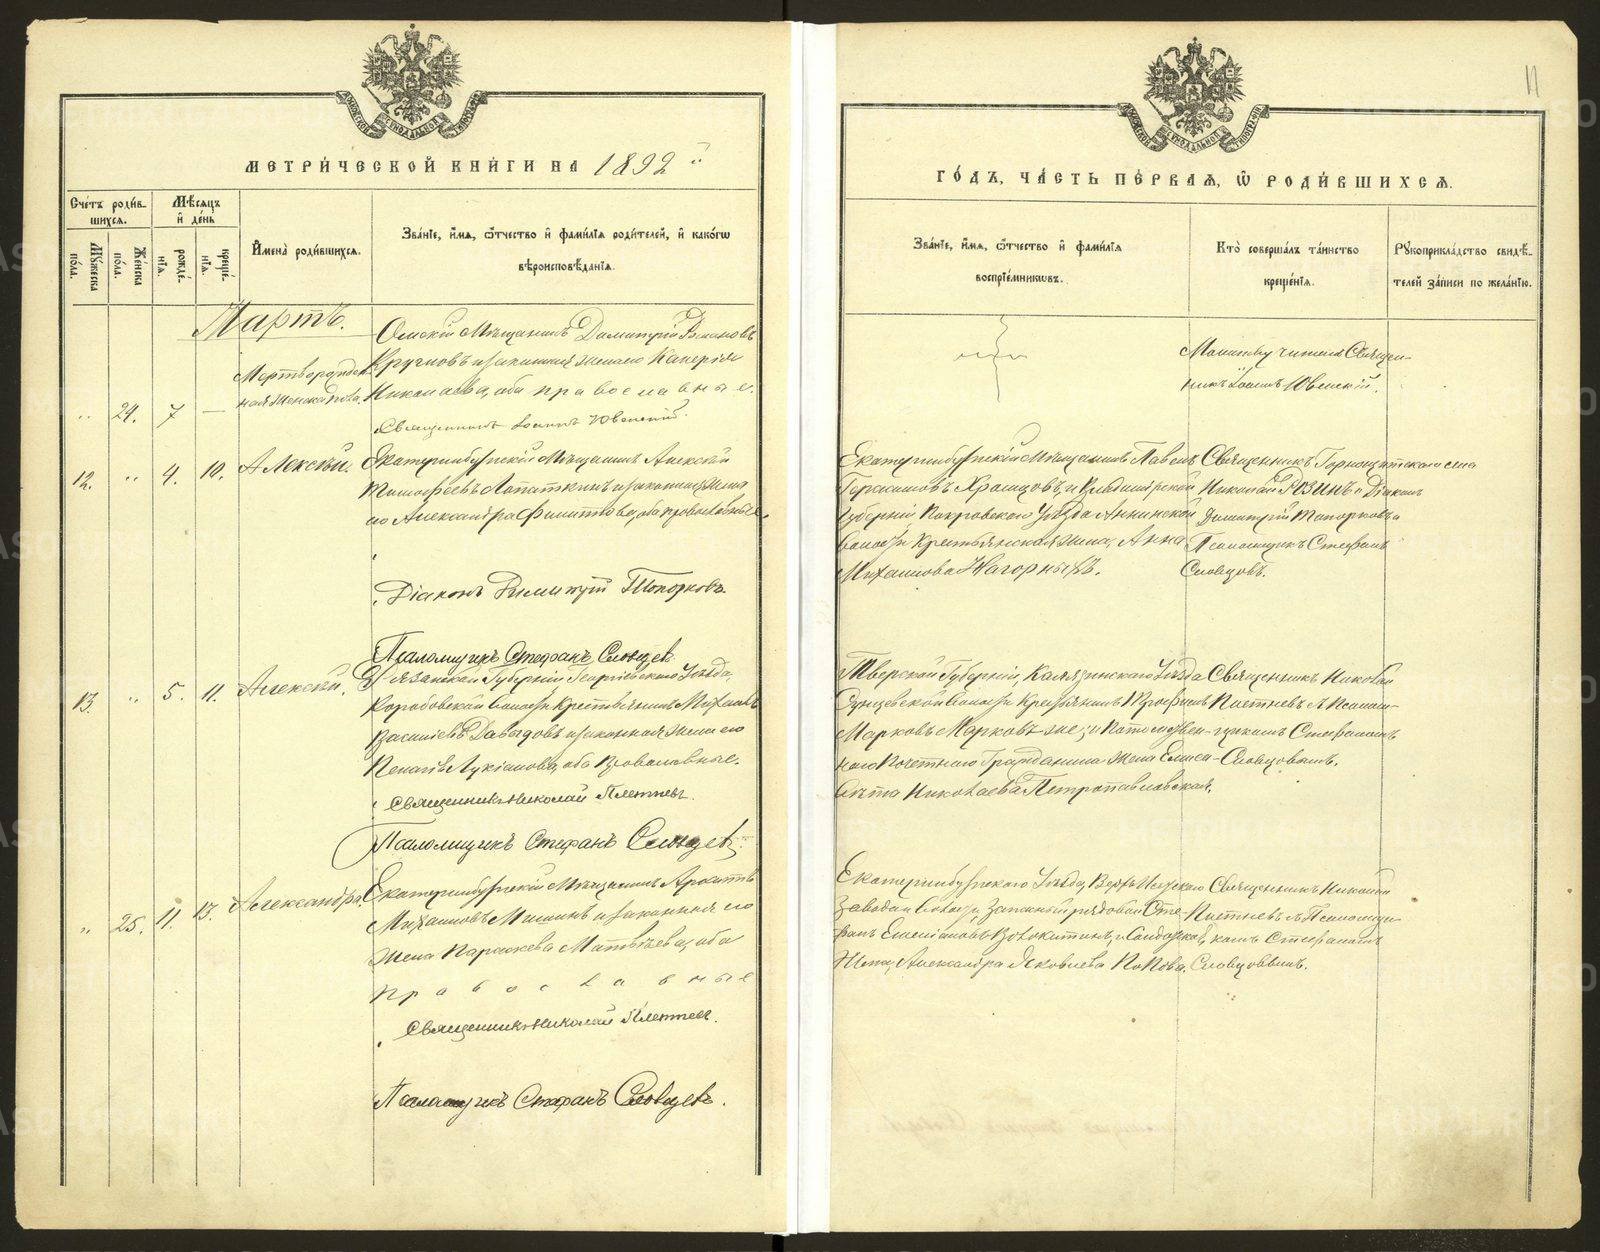 11
МЕТРИ́ЧЕСКОЙ КНИ́ГИ НА 1892 й
ГО́ДЪ, ЧА́СТЬ ПЕ́РВАЯ, Ѿ РОДИ́ВШИХСЯ.
Сче́тъ роди́в-
шихся.
Му́жеска по́ла.
Же́нска по́ла.
Мѣ́сяцъ
и́ де́нь
рожде́-
нїя.
креще́-
нїя.
И҆мена̀ роди́вшихся.
Зва́нїе, и҆́мя, ѻ҆́тчество и҆ фами́лїя роди́телей, и҆ како́гѡ
вѣроисповѣ́данїя.
Зва́нїе, и҆́мя, ѻ҆́тчество и҆ фами́лїя
воспрїе́мниковъ.
Кто̀ соверша́лъ та́инство
креще́нїя.
Рꙋкоприкла́дство свидѣ́-
телей за́писи по жела́нїю.
Мартъ.
" 24. 7 —
Мертворожден-
ная женска пола.
Омскій Мѣщанинъ Димитрій Ивановъ
Кругловъ и законная жена его Калерія
Николаева, оба православные.
Священникъ Іоаннъ Ювенскій.
Молитву читалъ Священ-
никъ Іоаннъ Ювенскій.
12. " 4. 10.
Алексѣй.
Екатеринбургскій Мѣщанинъ Алексѣй
Тимофеевъ Лопаткинъ и законная жена
его Александра Филиппова, оба православные.
Діаконъ Димитрій Топорковъ
Псаломщикъ Стефанъ Словцевъ
Екатеринбургскій Мѣщанинъ Павелъ
Герасимовъ Храмцовъ, и Владимірской
Губерніи Покровскаго Уѣзда Аннинской
Волости Крестьянская жена, Анна
Михаилова Нагорныхъ.
Священникъ Горнощитскаго села
Николай Розинъ и Діаконъ
Димитрій Топорковъ и
Псаломщикъ Стефанъ
Словцовъ.
13. " 5. 11.
Алексѣй.
Рязанской Губерніи Уѣзда,
Коробовской Волости Крестьянинъ Михаилъ
Василіевъ Давыдовъ и законная жена его
Пелагія Лукіанова, оба Православные.
Священникъ Николай Плетневъ.
Псаломщикъ Стефанъ Словцевъ
Тверской Губерніи, Калязинскаго Уѣзда
Волости Крестьянинъ Трофимъ
Марковъ Марковъ же; и Потомствен-
наго Почетнаго Гражданина жена Елиса-
вѣта Николаева Петропавловская.
Священникъ Николай
Плетневъ съ Псалом-
щикомъ Стефаномъ
Словцовымъ.
" 25. 11. 13.
Александра.
Екатеринбургскій Мѣщанинъ
Михаиловъ Мишинъ и законная его
жена Параскева Матвѣева, оба
православные
Священникъ Николай Плетневъ.
Псаломщикъ Стефанъ Словцевъ.
Екатеринбургскаго Уѣзда, Верхъ-Исетскаго
Завода и Волости Запасный рядовой Сте-
фанъ Емеліановъ Волокитинъ, и Солдатская
Жена, Александра Яковлева Попова.
Священникъ Николай
Плетневъ съ Псаломщи-
комъ Стефаномъ
Словцовымъ.